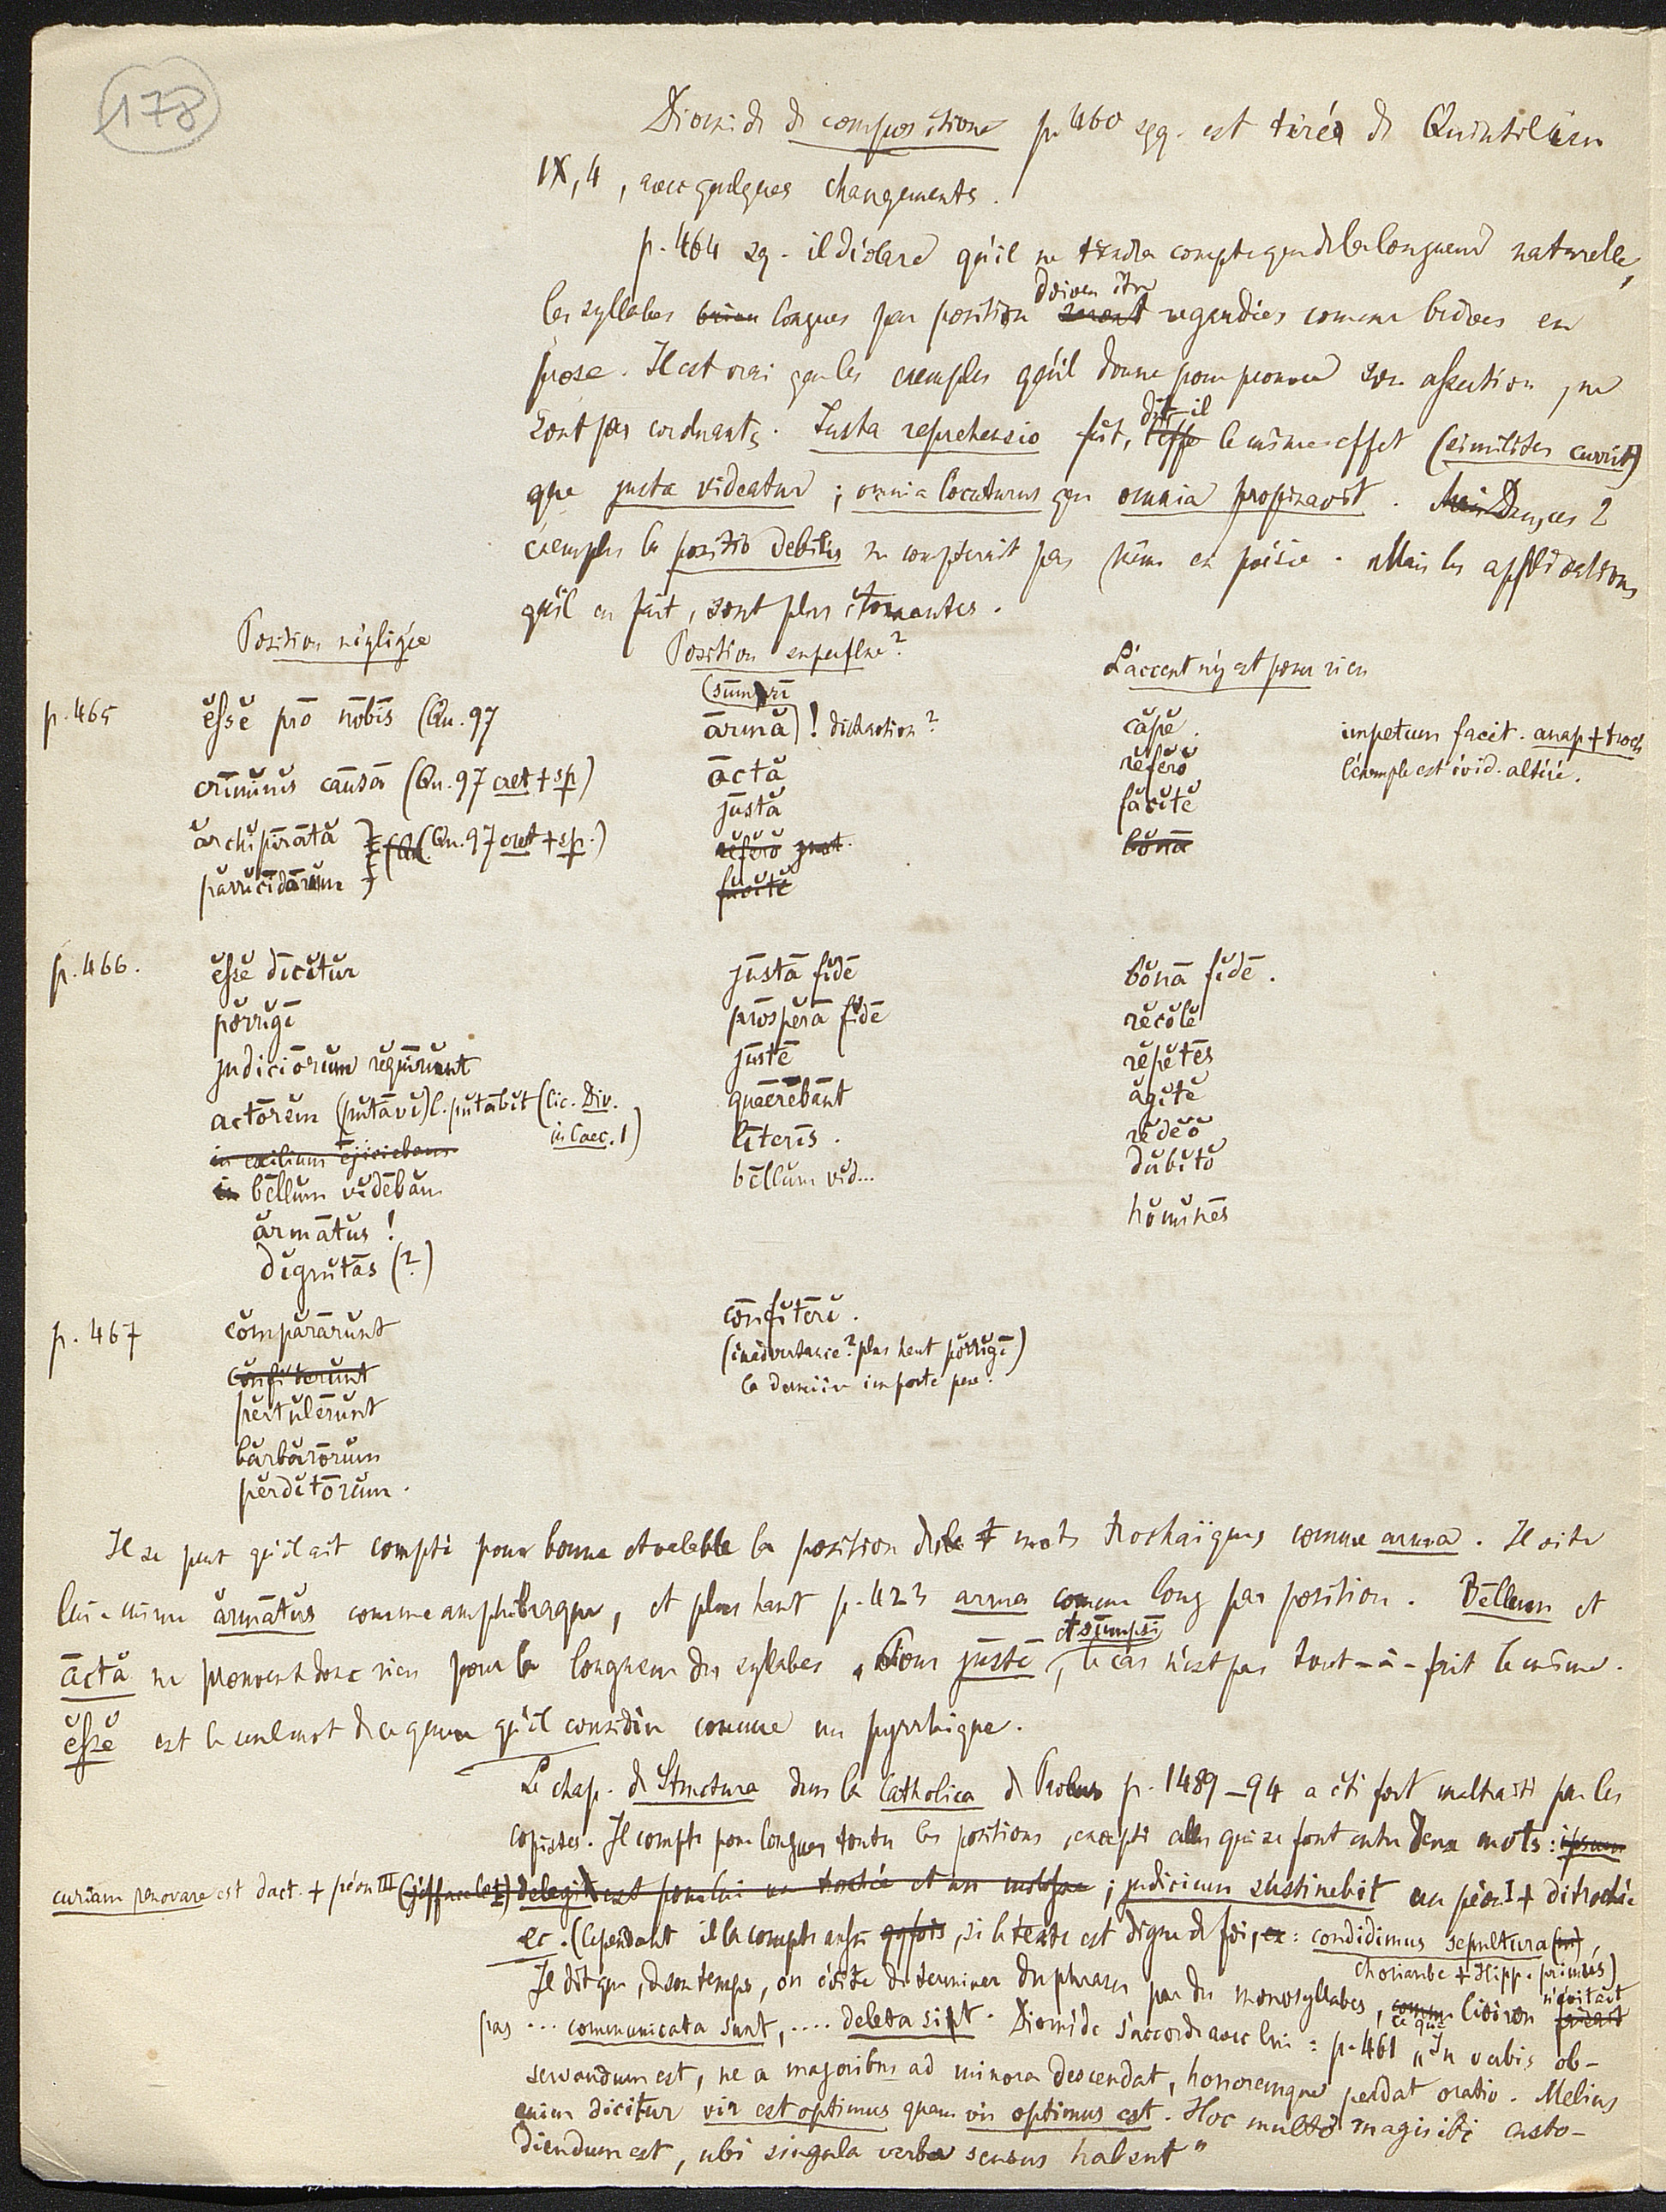 178
Diomède de compositione p. 460 sqq. est tirée de Quintilien
IX, 4, avec quelques changements.
p. 464 sq. il déclare qu'il ne tiendra compte que de la longueur naturelle,
les syllabes longues par position doiven être seront regardées comme brèves en
prose. Il est vrai que les exemples qu'il donne pour prouver son assertion, ne
sont pas concluants. Justa reprehensio fait, dit-il l'effe le même effet (similiter currit)
que justa videatur ; omnia locuturus que omnia propinavit. Mais Dans ces 2
exemples la positio debilis ne compterait pas même en poésie. Mais les applications
qu'il en fait, sont plus étonnantes.
Position négligée
Position superflue?
L'accent n'y est pour rien
p. 465
ĕssĕ prō nōbīs (Qu. 97
crīmĭnĭs causā (Qu. 97 cret + sp)
ărchĭpīrātă
părrĭcīdārum
(Qu. 97 cret + sp.)
(sūmpsī
ārmă)! distraction?
āctă
jūstă
rĕfĕrŏ
făcĭtĕ
căpĕ.
rĕfĕrŏ
făcĭtĕ
bŏnā
impetum facit. anap + troch
l'exemple est évid. altéré.
p. 466.
ĕssĕ dīcĭtŭr
pŏrrĭgī
judiciōrŭm rĕquīrŭnt
actōrĕm (pŭtāvī) l. pŭtābĭt (Cic. Div.
in Caec. 1)
in exilium ējiciebam
in bĕllŭm vĭdēbăm
ărmātŭs!
dĭgnĭtās (?)
jūstā fĭdē
prōspĕrā fĭdē
jūstē
quaerēbānt
lītĕrīs.
bēllŭm vĭd...
bŏnā fĭdē.
rĕcŏlĕ
rĕpĕtēs
ăgĭtĕ
rĕdĕŏ
dŭbĭtŏ
hŏmĭnēs
p. 467
cŏmpărārŭnt
cŏnfĭterŭnt
pĕrtŭlērŭnt
bărbărōrŭm
pĕrdĭtōrŭm.
cōnfĭtērī.
(inadvertance? plus haut pŏrrĭgī)
la dernière importe peu.
Il se peut qu'il ait compté pour bonne et valable la position de mots trochaïques comme arma. Il cite
lui-même ărmātŭs comme amphibraque, et plus haut p. 423 arma comme long par position. Bēllum et
āctă ne prouvent donc rien pour la longueur des syllabes. Pour jūstē et sūmpsī, le cas n'est pas tout-à-fait le même.
ĕssĕ est le seul mot de ce genre qu'il considère comme un pyrrhique.
Le chap. de Structura dans la Catholica de Probus p. 1489–94 a été fort maltraité par les
copistes. Il compte pour longues toutes les positions, excepté celles qui se font entre deux mots : ipsum
curiam renovare est dact. + péon III (j'efface let) delegit est pour lui un trochée et un molosse ; judicium sustinebit un péon I + ditrochée
ec. (Cependant il la compte aussi qqfois, si le texte est digne de foi, ex : condidimus sepultura (m),
choriambe + Hipp. primus)
Il dit que, de son temps, on évite de terminer des phrases par des monosyllabes, comm ce que Cicéron n'évitait faisait
pas ... communicata sunt, .... deleta sint. Diomède s'accorde avec lui : p. 461 „In verbis ob-
servandum est, ne a majoribus ad minora descendat, honoremque perdat oratio. Melius
enim dicitur vir est optimus quam vir optimus est. Hoc multo magis ibi custo-
diendum est, ubi singula verba sensus habent"